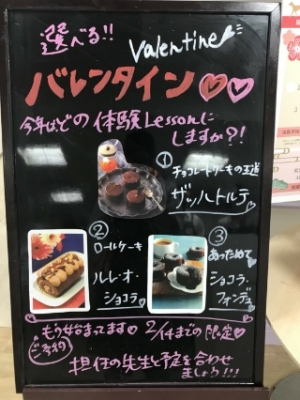 選べる!!
Valentine
バレンタイン♡♡
今年はどの体験Lessonに
しますか?!
①
チョコレートケーキの王道
ザッハトルテ
②
ロールケーキ
ルレ・オ・
ショコラ♡
③
あっためて♡
ショコラ・
フォンデュ
もう始まってます♡2/14までの限定♡
ご予約
担任の先生と予定を合わせ
ましょう!!!